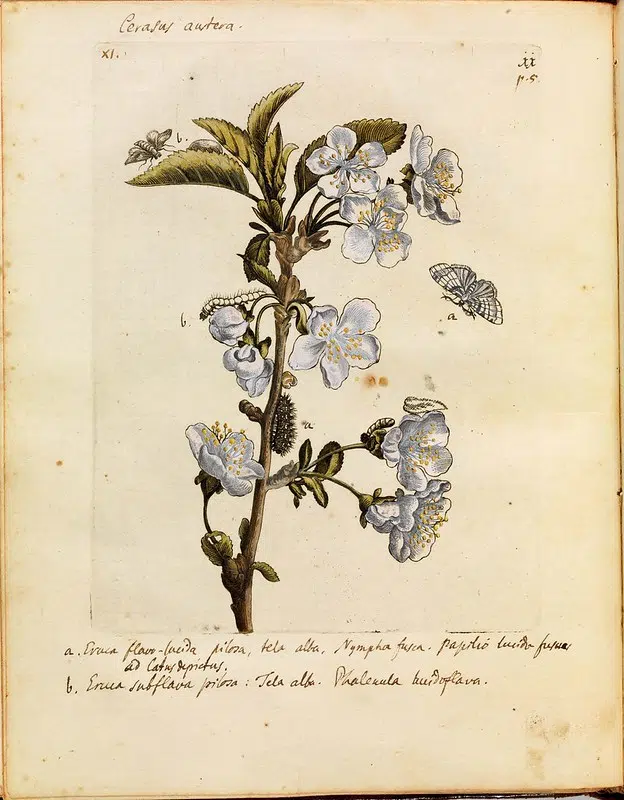 Cerasus austera.
XI.
XI
p. 5.
b.
a
b.
a
a. Eruca flavo-lucida pilosa, tela alba, Nympha fusca. Papilio lucido fuscus
ad latus depictus.
b. Eruca subflava pilosa: Tela alba. Phalenula lucidoflava.